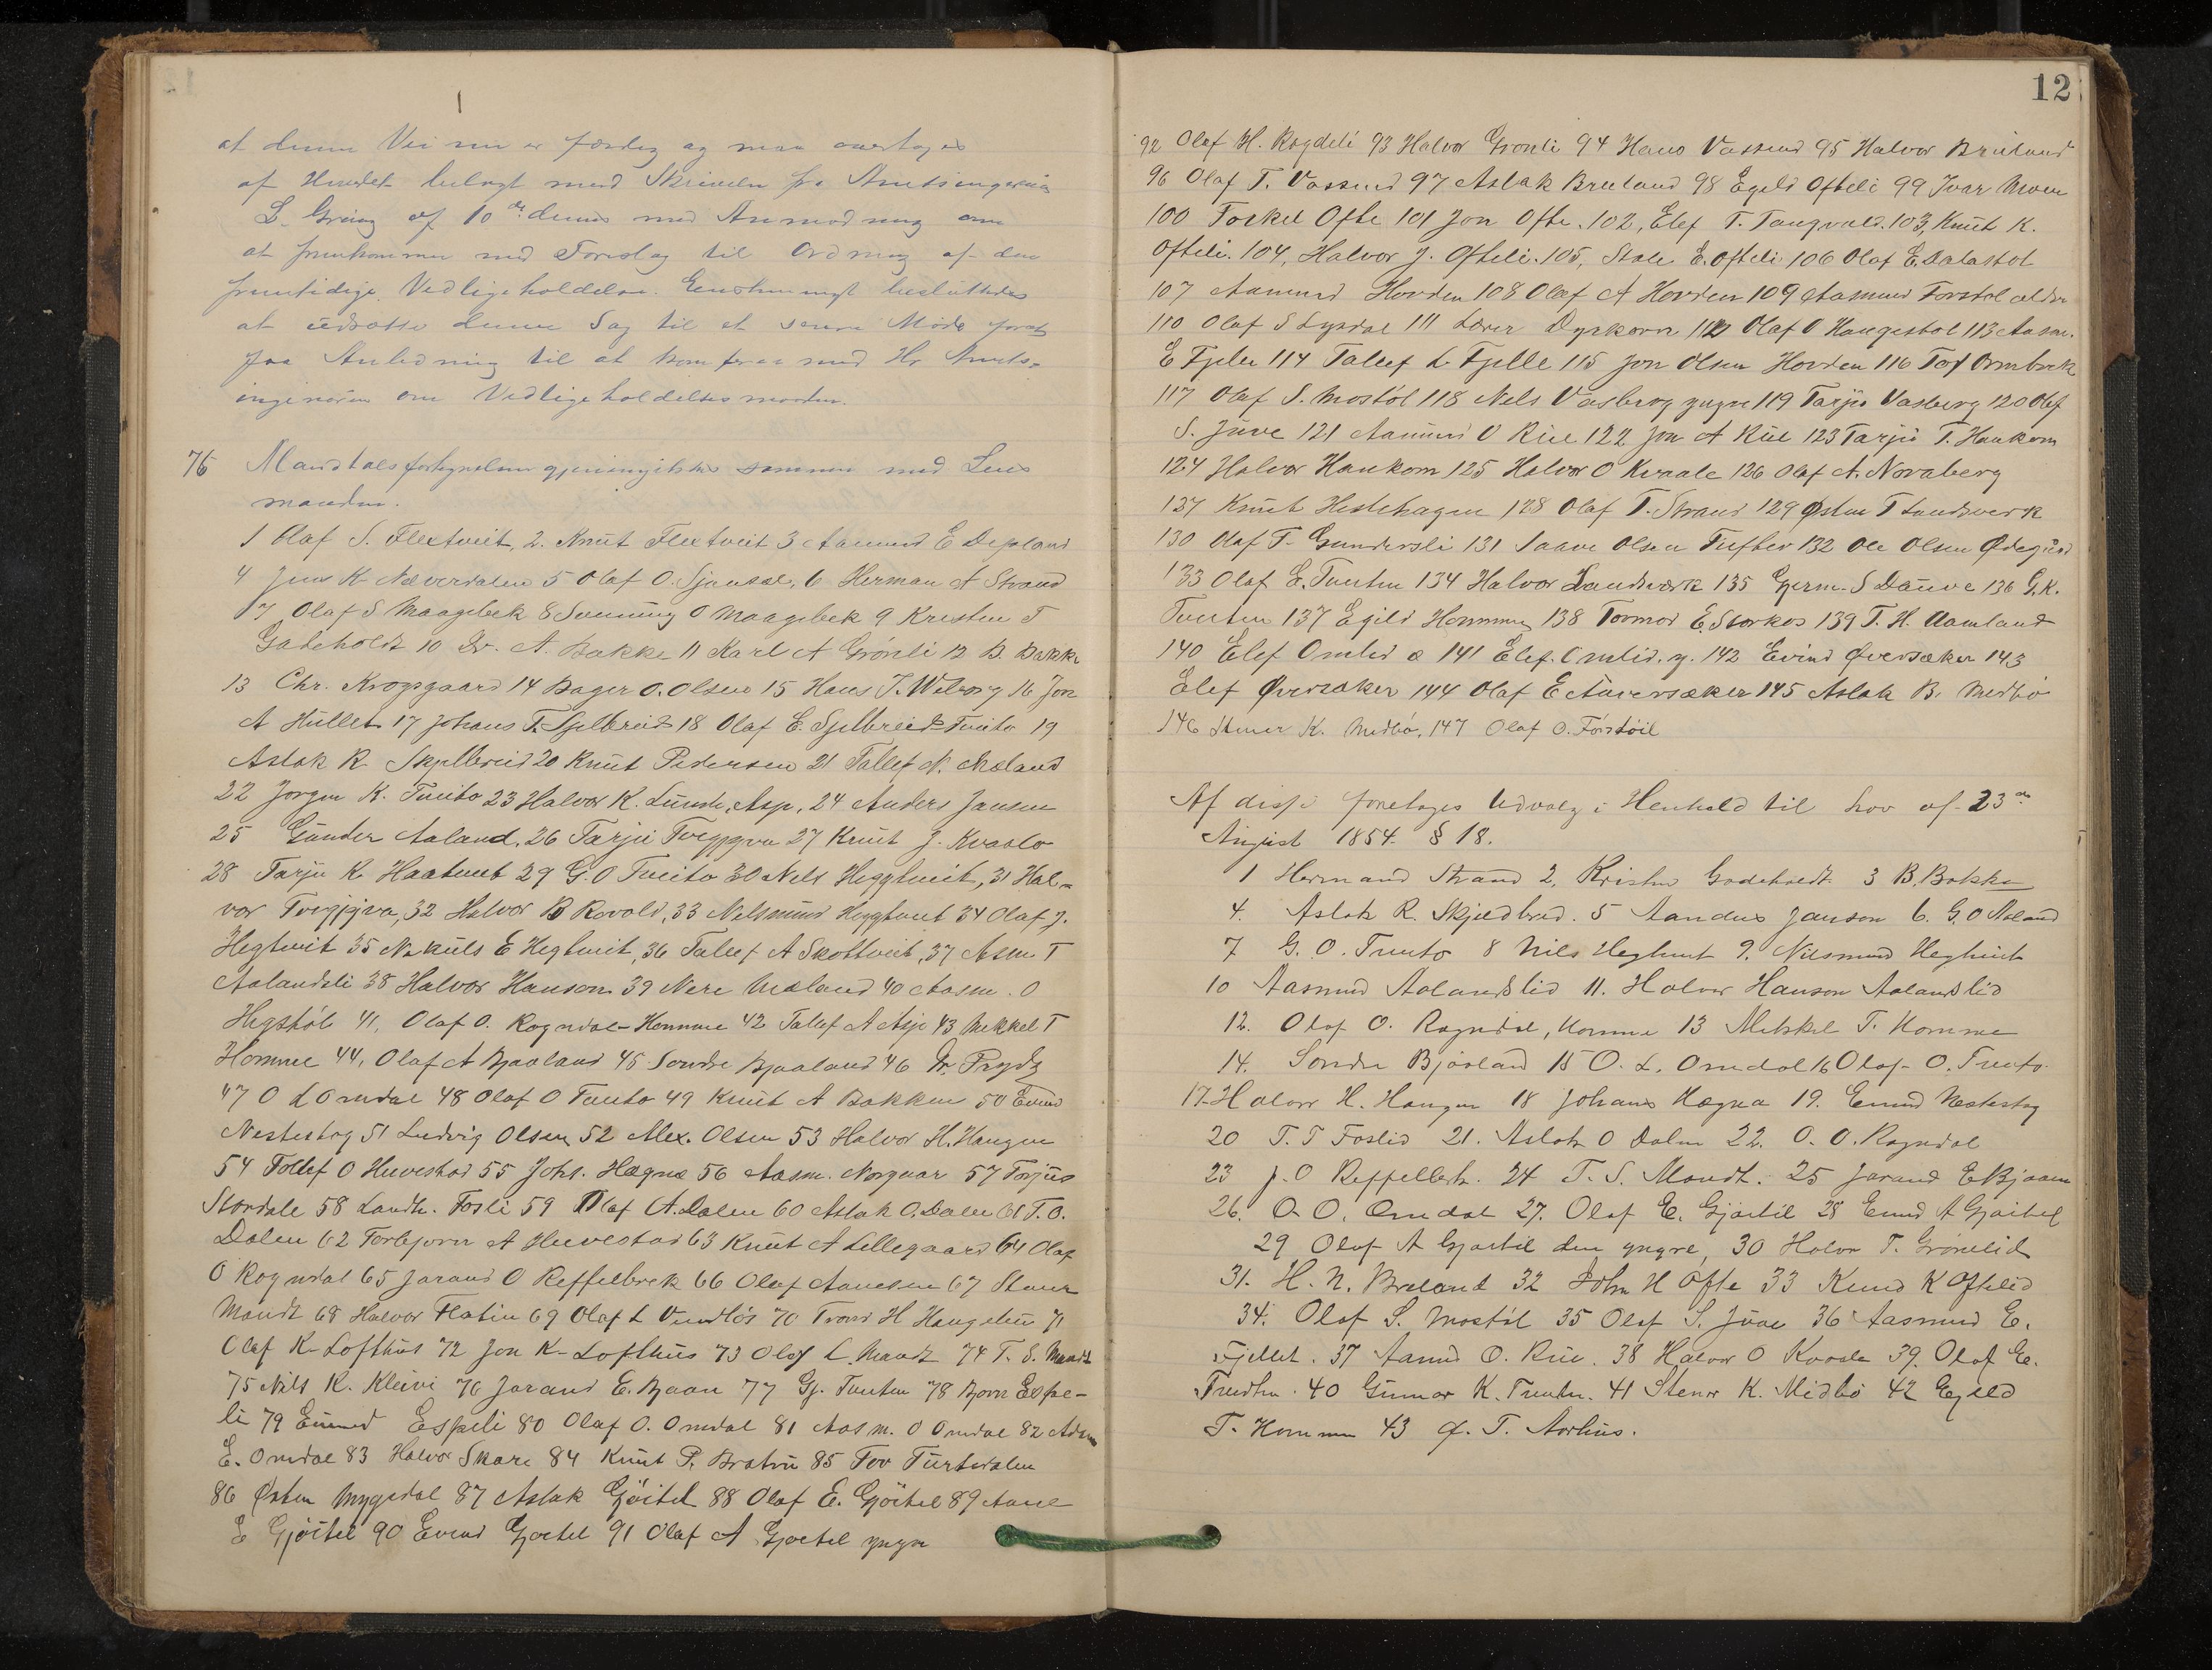 at denne Vei nu er færdig og maa overtages
af Herredet belagt med Skrivelse fra Amtsingeniør
L. Grieg af 10de dennes med Anmodning om
at fremkomme med Forslag til Ordning af den
fremtidige Vedligeholdelse. Eenstemmigt besluttedes
at udsætte denne Sag til et senere Møde forat
faa Anledning til at konferere med Hr Amts-
ingeniøren om Vedligeholdelsesmaaden.
76 Mandtalsfortegnelsen gjennemgikkes sammen med Lens
manden.
1 Olaf S. Flextveit, 2. Knut Flextveit 3 Aamund E Depland
4 Jens K Næverdalen 5 Olaf O. 6 Herman A Strand
7 Olaf S Maagebek 8 Sveinung O Maagebek 9 Kristen T
Gadeholdt 10 Dr. A. Bakke 11 Karl A Grønli 12 B. Bakke
13 Chr. Krogsgaard 14 Bager O. Olsen 15 Hans J. 16 Jon
A Hullet 17 Johans T. 18 Olaf E. Tveito 19
Aslak R 20 Knut Pedersen 21 Tallef N. Mæland
22 Jørgen K. Tveito 23 Halvor K. Lunde, Asp, 24 Anders Jansen
25 Gunder Aaland, 26 Tarjei 27 Knut J. Kvaale
28 Tarjei K. Haatveit 29 G. O Tveito 30 Nils Heggtveit, 31 Hal-
vor 32 Halvor B Rovold, 33 Nilsmund Heggtveit 34 Olaf J.
Hegtveit 35 E Hegtveit, 36 Tallef A Skottveit, 37 Asm. T
Aalandsli 38 Halvor Hanson 39 Nere Mæland 40 Aasm. O
Hegstøl 41, Olaf O. Rogndal-Homme 42 Talef A Asp 43 Mekkel T
Homme 44, Olaf A Bjaaland 45 Sondre Bjaaland 46 Dr. Prydz
47 O L Omdal 48 Olaf O Tveito 49 Knut A Bakken 50 Eivind
Nestestog 51 Ludvig Olsen 52 Alex. Olsen 53 Halvor H. Haugen
54 Tollef O Huvestad 55 Johs. Hægna 56 Aasm. Norgaar 57 Torjus
Stordale 58 Landh. Fosli 59 Olaf A. Dalen 60 Aslak O. Dalen 61 T. O.
Dalen 62 Torbjørn A Huvestad 63 Knut A Lillegaard 64 Olaf
O Rogndal 65 Jarand O Reffelbrek 66 Olaf Aanesen 67 Steinar
Mandt 68 Halvor Flatin 69 Olaf L 70 Trond H Haugelien 71
Olaf K. Lofthus 72 Jon K. Lofthus 73 Olaf L. Mandt 74 T. S. Mandt
75 Nils K. Kleivi 76 Jarand E. Bjaan 77 Gj. Tveiten 78 Bjorn Espe-
li 79 Eivind Espeli 80 Olaf O. Omdal 81 Aasm. O Omdal 82
E. Omdal 83 Halvor Skare 84 Knut P. Bratin 85 Tov Turtedalen
86 Østen Mygedal 87 Aslak Gjøitil 88 Olaf E. Gjøitil 89
E Gjøitil 90 Eivind Gjøitil 91 Olaf A Gjøitil yngre
12
92 Olaf H. Rogdeli 93 Halvor Grønli 94 Hans Vassend 95 Halvor Breiland
96 Olaf T. Vassend 97 Aslak Breiland 98 Egeld Ofteli 99 Ivar Moen
100 Torkel Ofte 101 Jon Ofte. 102, Elef T. Tangvald. 103, Knut K.
Ofteli. 104, Halvor J. Ofteli. 105, Stale E. Ofteli 106 Olaf E. Dalastøl
107 Aamund Hovden 108 Olaf A Hovden 109 Aasmund Forstøl ældre
110 Olaf S Lysdal 111 Lærer Dyrkorn 112 Olaf O Haugestøl 113 Aasm.
E Fjelle 114 Talleef L Fjelle 115 Jon Olsen Hovden 116 Tov Ormbrek
117 Olaf S. Mostøl 118 Nels Vasberg yngre 119 Tarjei Vasberg 120 Olaf
S. Juve 121 Aamund O Rue 122 Jon A Rue 123 Tarjei T. Haukom
124 Halvor Haukom 125 Halvor O Kvaale 126 Olaf A. Novaberg
127 Knut Hestehagen 128 Olaf T. Strand 129 Østen T Landsverk
130 Olaf T. Gundersli 131 Saave Olsen Tufter 132 Ole Olsen Ødegård
133 Olaf E. Tveiten 134 Halvor Landsverk 135 Gjerm. S Dauve 136 G. K.
Tveiten 137 Egild Hommen 138 Tormod E. Storkos 139 T. H. Aamland
140 Elef Omlid æ 141 Elef. Omlid. y. 142 Eivind Øversaker 143
Elef Øversaker 144 Olaf E 145 Aslak B. Medbø
146 Steinar K. Medbø. 147 Olaf O. Førstøil
Af disse foretages Udvalg i Henhold til Lov af 23de
August 1854. § 18.
1 Hermand Strand 2, Kristen Gadeholdt 3 B. Bakke
4. Aslak R. Skjeldbred. 5 Aandres Janson 6. G. O Aaland
7 G. O. Tveito 8 Nils Hegtveit 9. Nilsmund Hegtveit
10 Aasmund Aalandslid 11. Halvor Hanson Aalandslid
12. Olaf O. Rogndal, Homme 13 Mekkel T. Homme
14. Sondre Bjåland 15 O. L. Omdal 16 Olaf O. Tveito
17. Halvor H. Haugen 18 Johans Hægna 19. Eivind Nestestog
20 T. T Foslid 21. Aslak O Dalen 22. O. O. Rogndal
23 J. O Reffelbrek. 24 T. S. Mandt. 25 Jarand E Bjaaen
26. O. O. Omdal 27. Olaf E. Gjøitil 28 Eivind A Gjøitil
29 Olaf A Gjøitil den yngre, 30 Halvor T. Grønlid
31. H. N. Breland 32 John H Ofte 33 Knud K Oftelid
34. Olaf S. Mostøl 35 Olaf S. Juve 36 Aasmund E.
Fjellet. 37 Aamund O. Rue. 38 Halvor O Kvaale 39. Olaf E.
Tveiten. 40 Gunnar K. Tveiten. 41 Steinar K. Midbø 42 Egild
T. Hommen 43 Ø. T. Aarhus.